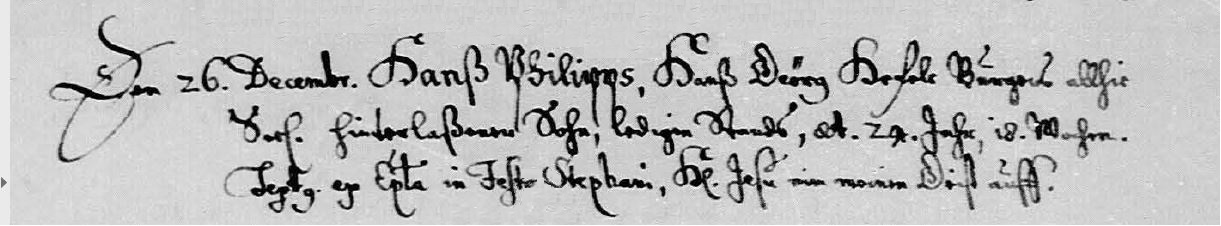 Den 26. Decembr. Hanß Philipps, Hanß Geörg Hefele Burgers allhie
Seel. hinterlaßener Sohn, ledigen Stands, æt. 24. Jahr, 18. Wochen.
Text9. ex Epla in Festo Stephani, H. Jesu nim meinen Geist auff.